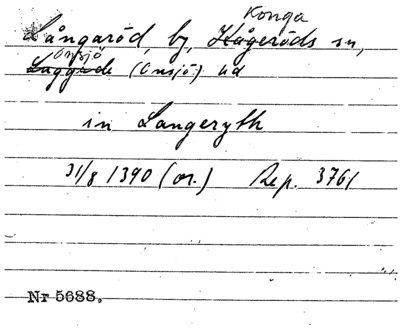 Konga
Långaröd, by, Hågeröds sn,
Onsjö
Luggude (Onsjö) hd
in Langeryth
31/8 1390 (or.) Rep. 3761
Nr 5688.